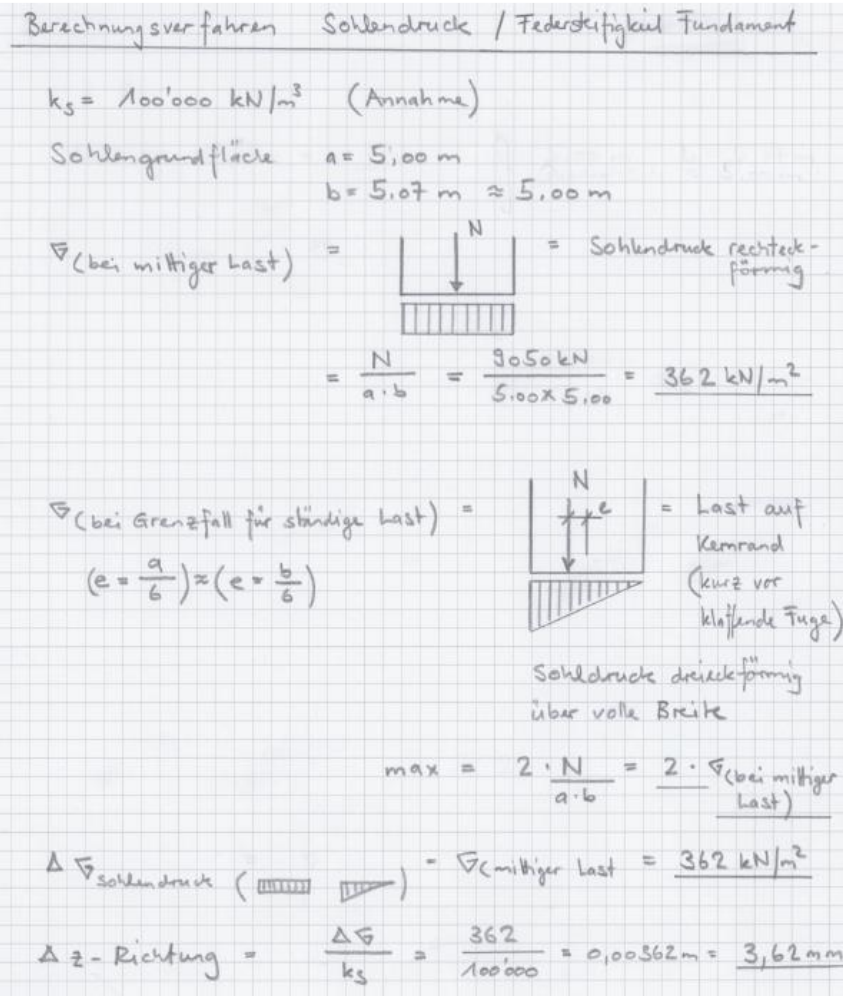 Berechnungsverfahren Sohlendruck / Federsteifigkeit Fundament
ks = 100'000 kN/m³ (Annahme)
Sohlengrundfläche a = 5,00 m
b = 5.07 m ≈ 5.00 m
σ (bei mittiger Last) = N = Sohlendruck rechteck-
förmig
= N / a · b = 9050 kN / 5.00 x 5.00 = 362 kN/m²
σ (bei Grenzfall für ständige Last) = N e = Last auf
Kernrand
(e = a/6) ≈ (e = b/6) (kurz vor
klaffende Fuge)
Sohldruck dreieckförmig
über volle Breite
max = 2 · N / a · b = 2 · σ (bei mittiger
Last)
Δ σ Sohlendruck ( ) = σ (mittiger Last = 362 kN/m²
Δ z - Richtung = Δσ / ks = 362 / 100'000 = 0,00362 m = 3,62 mm